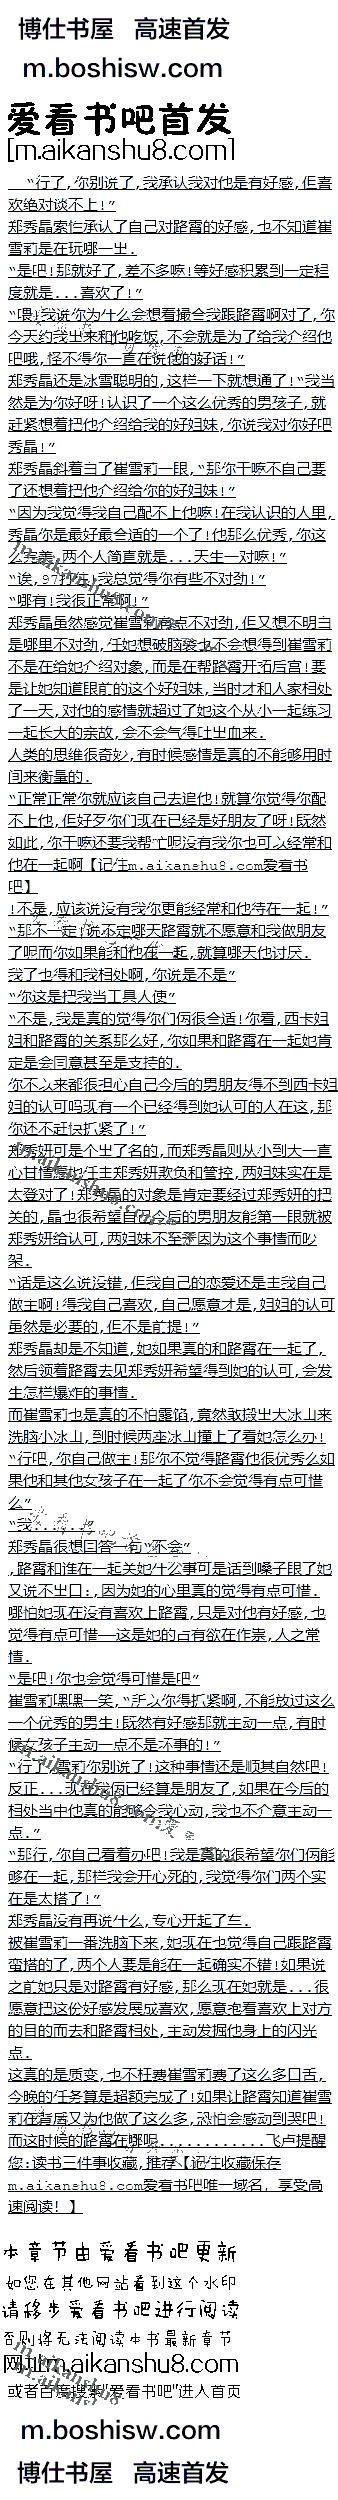 博仕书屋 高速首发
m.boshisw.com
爱看书吧首发
[m.aikanshu8.com]
“行了,你别说了,我承认我对他是有好感,但喜
欢绝对谈不上!”
郑秀晶索性承认了自己对路霄的好感,也不知道崔
雪莉是在玩哪一出.
“是吧!那就好了,差不多嘛!等好感积累到一定程
度就是...喜欢了!”
“喂!我说你为什么会想着撮合我跟路霄啊对了,你
今天约我出来和他吃饭,不会就是为了给我介绍他
吧哦,怪不得你一直在说他的好话!”
郑秀晶还是冰雪聪明的,这样一下就想通了!“我当
然是为你好呀!认识了一个这么优秀的男孩子,就
赶紧想着把他介绍给我的好姐妹,你说我对你好吧
秀晶!”
郑秀晶斜着白了崔雪莉一眼,“那你干嘛不自己要
了还想着把他介绍给你的好姐妹!”
“因为我觉得我自己配不上他嘛!在我认识的人里,
秀晶你是最好最合适的一个了!他那么优秀,你这
么完美,两个人简直就是...天生一对嘛!”
“诶,97打住!我总觉得你有些不对劲!”
“哪有!我很正常啊!”
郑秀晶虽然感觉崔雪莉有点不对劲,但又想不明白
是哪里不对劲,任她想破脑袋也不会想得到崔雪莉
不是在给她介绍对象,而是在帮路霄开拓后宫!要
是让她知道眼前的这个好姐妹,当时才和人家相处
了一天,对他的感情就超过了她这个从小一起练习
一起长大的亲故,会不会气得吐出血来.
人类的思维很奇妙,有时候感情是真的不能够用时
间来衡量的.
“正常正常你就应该自己去追他!就算你觉得你配
不上他,但好歹你们现在已经是好朋友了呀!既然
如此,你干嘛还要我帮忙呢没有我你也可以经常和
他在一起啊【记住m.aikanshu8.com爱看书
吧】
!不是,应该说没有我你更能经常和他待在一起!”
“那不一定!说不定哪天路霄就不愿意和我做朋友
了呢而你如果能和他在一起,就算哪天他讨厌.
我了也得和我相处啊,你说是不是”
“你这是把我当工具人使”
“不是,我是真的觉得你们俩很合适!你看,西卡姐
姐和路霄的关系那么好,你如果和路霄在一起她肯
定是会同意甚至是支持的.
你不以来都很担心自己今后的男朋友得不到西卡姐
姐的认可吗现有一个已经得到她认可的人在这,那
你还不赶快抓紧了!”
郑秀妍可是个出了名的,而郑秀晶则从小到大一直
心甘情愿地任主郑秀妍欺负和管控,两姐妹实在是
太登对了!郑秀晶的对象是肯定要经过郑秀妍的把
关的,晶也很希望自己今后的男朋友能第一眼就被
郑秀妍给认可,两姐妹不至于因为这个事情而吵
架.
“话是这么说没错,但我自己的恋爱还是主我自己
做主啊!得我自己喜欢,自己愿意才是,姐姐的认可
虽然是必要的,但不是前提!”
郑秀晶却是不知道,她如果真的和路霄在一起了,
然后领着路霄去见郑秀妍希望得到她的认可,会发
生怎样爆炸的事情.
而崔雪莉也是真的不怕露馅,竟然敢搬出大冰山来
洗脑小冰山,到时候两座冰山撞上了看她怎么办!
“行吧,你自己做主!那你不觉得路霄他很优秀么如
果他和其他女孩子在一起了你不会觉得有点可惜
么”
“我......”
郑秀晶很想回答一句“不会”
,路霄和谁在一起关她什么事可是话到嗓子眼了她
又说不出口:,因为她的心里真的觉得有点可惜.
哪怕她现在没有喜欢上路霄,只是对他有好感,也
觉得有点可惜一一这是她的占有欲在作祟,人之常
情.
“是吧!你也会觉得可惜是吧”
崔雪莉嘿嘿一笑,“所以你得抓紧啊,不能放过这么
一个优秀的男生!既然有好感那就主动一点,有时
候女孩子主动一点不是坏事的!”
“行了,雪莉你别说了!这种事情还是顺其自然吧!
反正...现在我俩已经算是朋友了,如果在今后的
相处当中他真的能够令我心动,我也不介意主动一
点.”
“那行,你自己看着办吧!我是真的很希望你们俩能
够在一起,那样我会开心死的,我觉得你们两个实
在是太搭了!”
郑秀晶没有再说什么,专心开起了车.
被崔雪莉一番洗脑下来,她现在也觉得自己跟路霄
蛮搭的了,两个人要是能在一起确实不错!如果说
之前她只是对路霄有好感,那么现在她就是...很
愿意把这份好感发展成喜欢,愿意抱着喜欢上对方
的目的而去和路霄相处,主动发掘他身上的闪光
点.
这真的是质变,也不枉费崔雪莉费了这么多口舌,
今晚的任务算是超额完成了!如果让路霄知道崔雪
莉在背后又为他做了这么多,恐怕会感动到哭吧!
而这时候的路霄在哪呢............飞卢提醒
您:读书三件事收藏,推荐【记住收藏保存
m.aikanshu8.com爱看书吧唯一域名, 享受高
速阅读! 】
本章节由爱看书吧更新
如您在其他网站看到这个水印
请移步爱看书吧进行阅读
否则将无法阅读本书最新章节
网址m.aikanshu8.com
或者百度搜索"爱看书吧"进入首页
m.boshisw.com
博仕书屋 高速首发